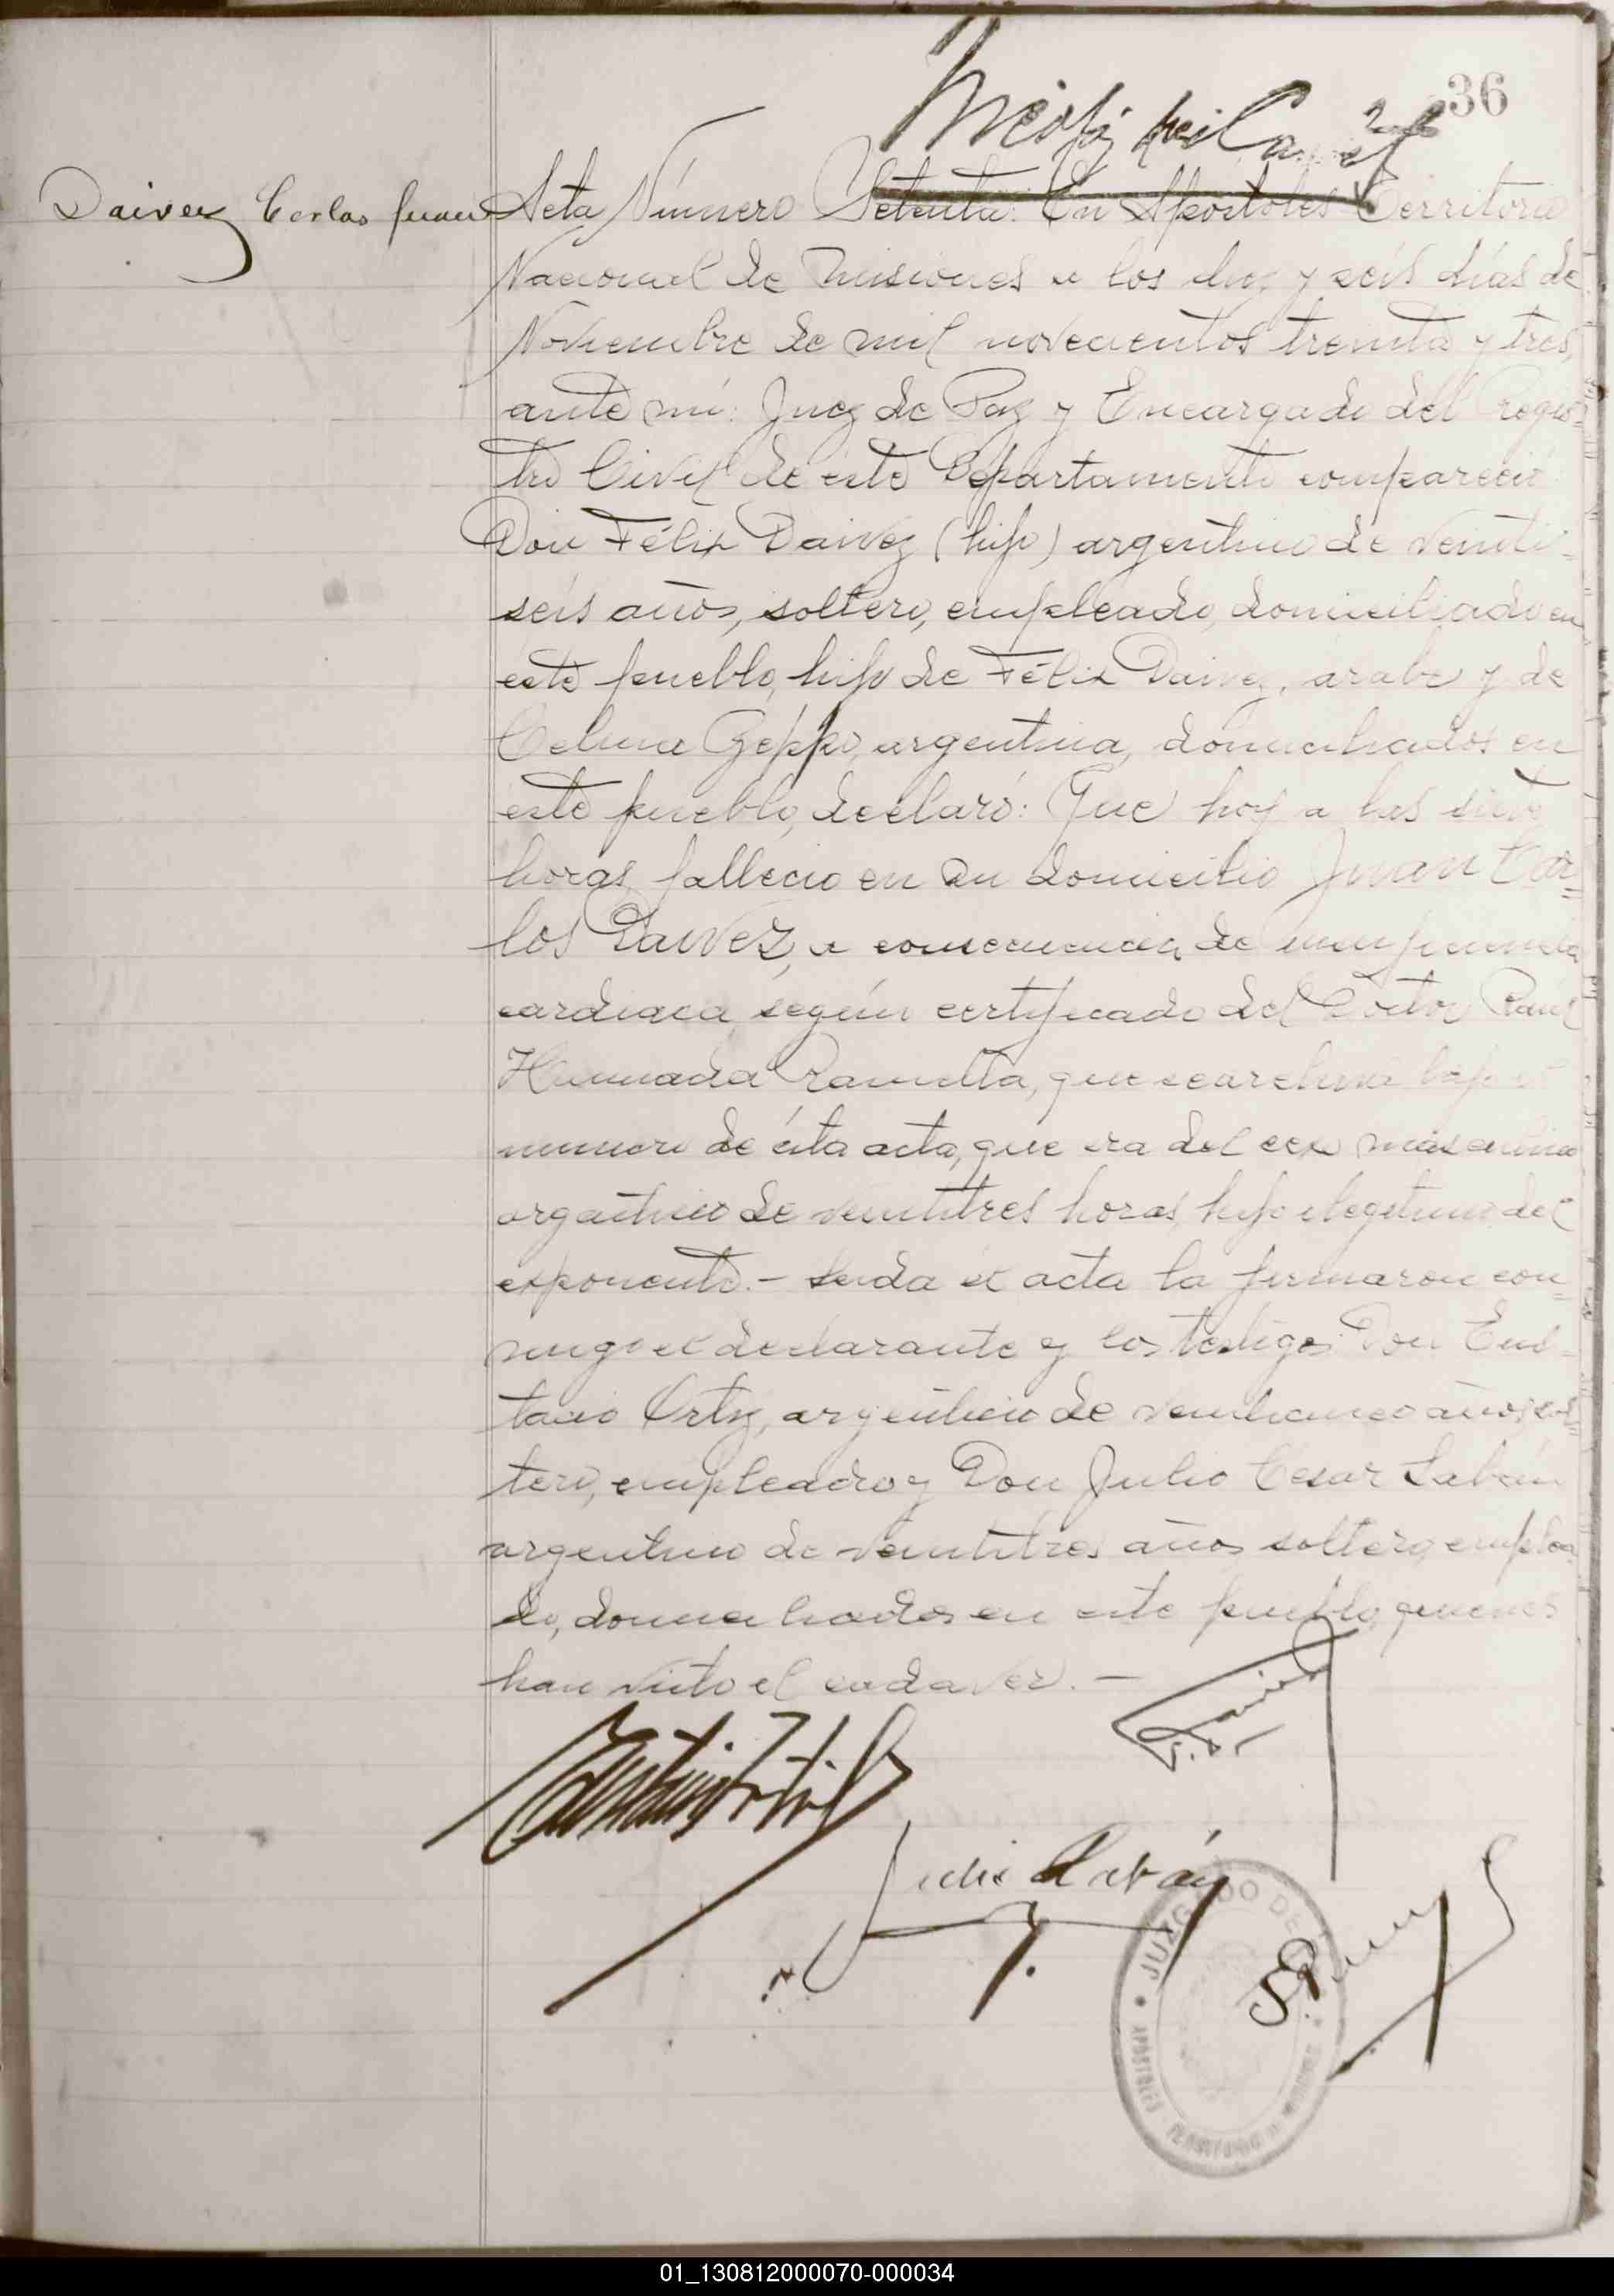 36
Daivez Carlos Juan
Acta Número Setenta: En Apostoles Territorio
Nacional de Misiones a los diez y seis días de
Noviembre de mil novecientos treinta y tres,
ante mí: Juez de Paz y Encargado del Regis-
tro Civil de este Departamento compareció
Don Félix Daivez (hijo) argentino de veinti-
seis años, soltero, empleado, domiciliado en
este pueblo, hijo de Félix Daivez, arabe y de
Celina Geppo, argentina, domiciliados en
este pueblo, declaró: Que hoy a las siete
horas, fallecio en su domicilio Juan Car=
los Daivez, a consecuencia de
cardiaca, según certificado del Doctor Raúl
Ramella, que se archiva bajo el
numero de ésta acta, que era del sexo masculino
argentino de veintitres horas, hijo ilegitimo del
exponente.- Leida el acta la firmaron con=
migo el declarante y los testigos Don Eus-
tacio Ortiz, argentino de veinticinco años, sol=
tero, empleado y Don Julio Cesar Labán
argentino de veintitres años, soltero, emplea
do, domiciliados en este pueblo, quienes
han visto el cadaver.-
Julio Labán
JUZGADO DE
APOSTOLES TERRITORIO DE MISIONES
01_130812000070-000034